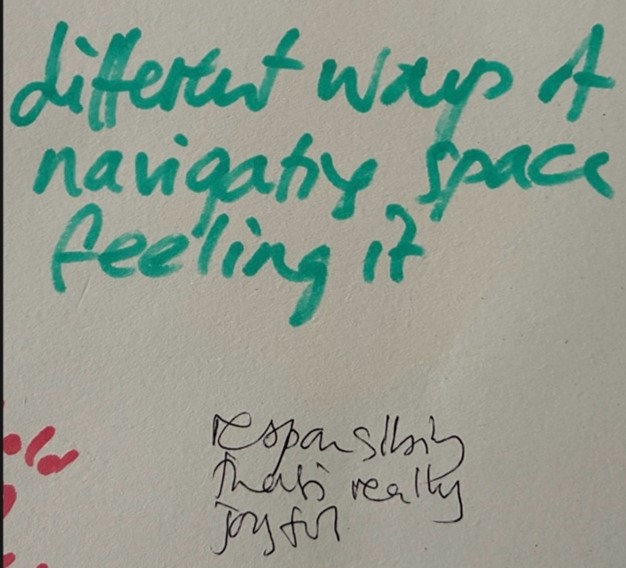 different ways of
navigating space
feeling it
responsibility
that's really
joyful